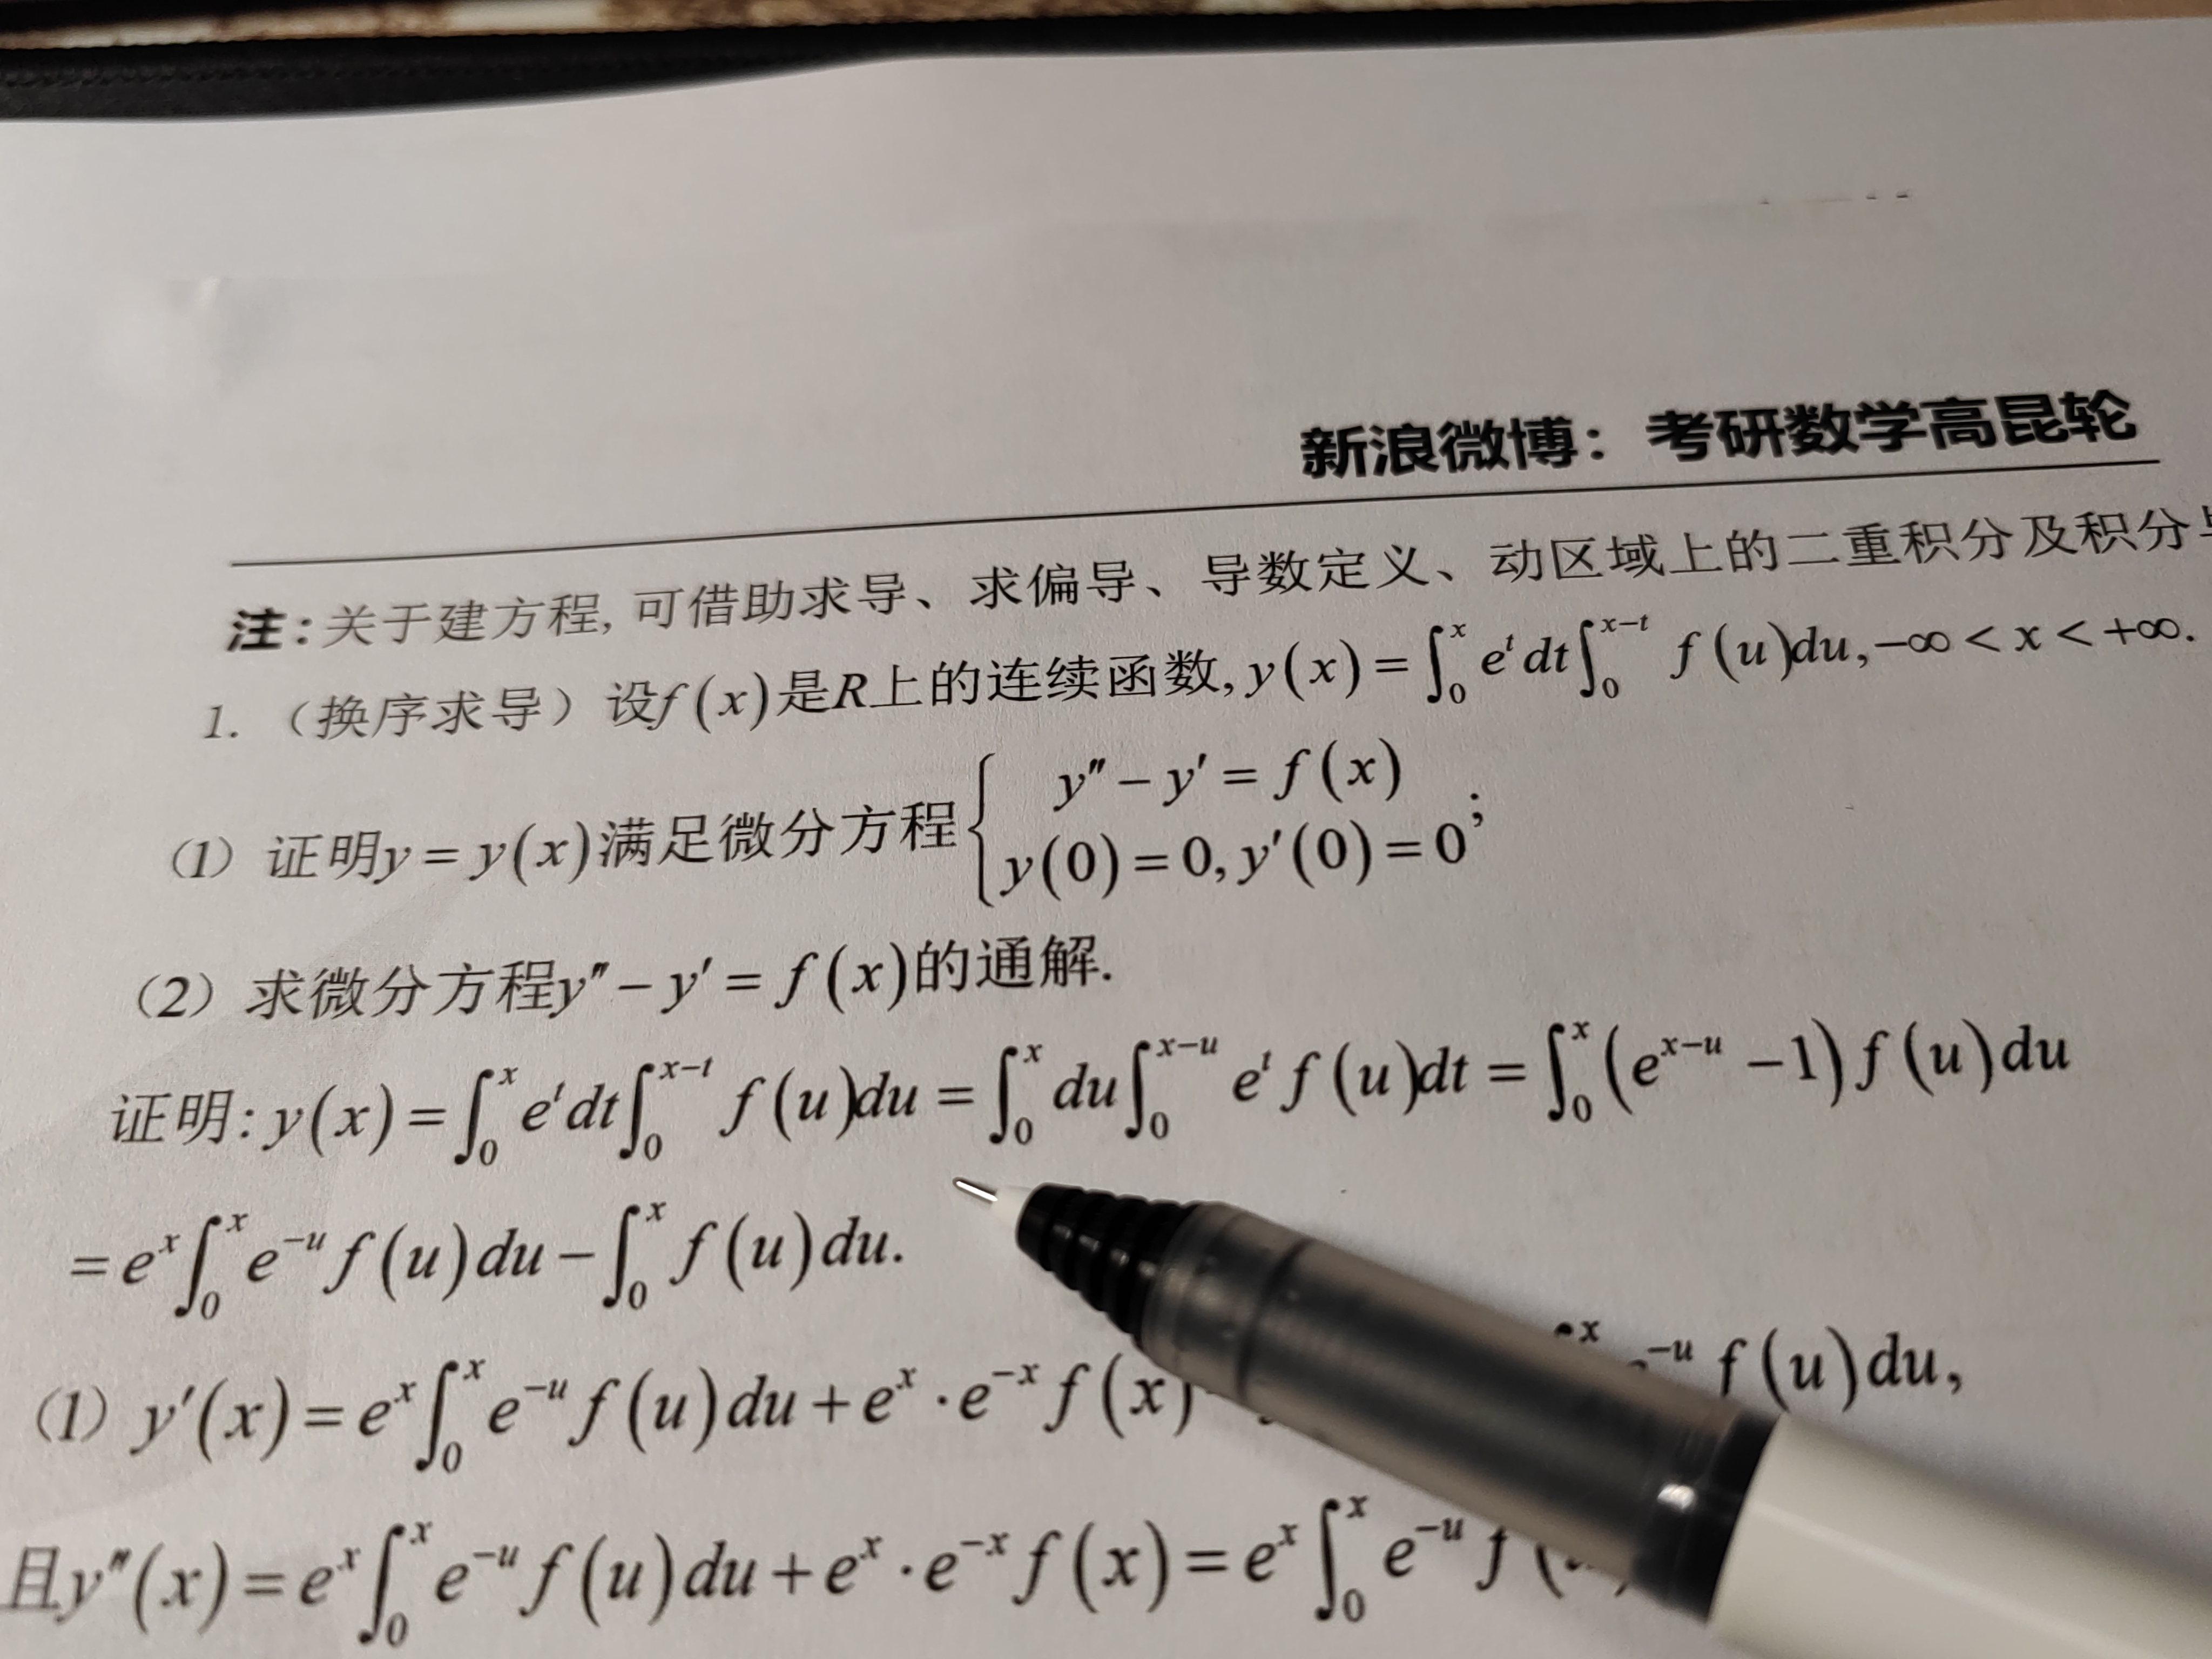 新浪微博：考研数学高昆轮
注：关于建方程，可借助求导、求偏导、导数定义、动区域上的二重积分及积分
1.（换序求导）设f(x)是R上的连续函数，y(x)=∫₀ˣ eᵗdt∫₀ˣ⁻ᵗ f(u)du，−∞<x<+∞.
（1）证明y=y(x)满足微分方程{y″−y′=f(x)
y(0)=0，y′(0)=0；
（2）求微分方程y″−y′=f(x)的通解.
证明：y(x)=∫₀ˣ eᵗdt∫₀ˣ⁻ᵗ f(u)du=∫₀ˣ du∫₀ˣ⁻ᵘ eᵗ f(u)dt=∫₀ˣ(eˣ⁻ᵘ−1)f(u)du
=eˣ∫₀ˣ e⁻ᵘ f(u)du−∫₀ˣ f(u)du.
（1）y′(x)=eˣ∫₀ˣ e⁻ᵘ f(u)du+eˣ·e⁻ˣ f(x) ⁻ᵘ f(u)du，
且y″(x)=eˣ∫₀ˣ e⁻ᵘ f(u)du+eˣ·e⁻ˣ f(x)=eˣ∫₀ˣ e⁻ᵘ f